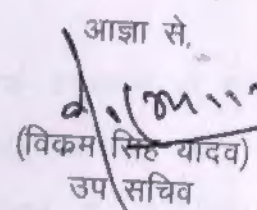 आज्ञा से,
(विकम सिंह यादव)
उप सचिव